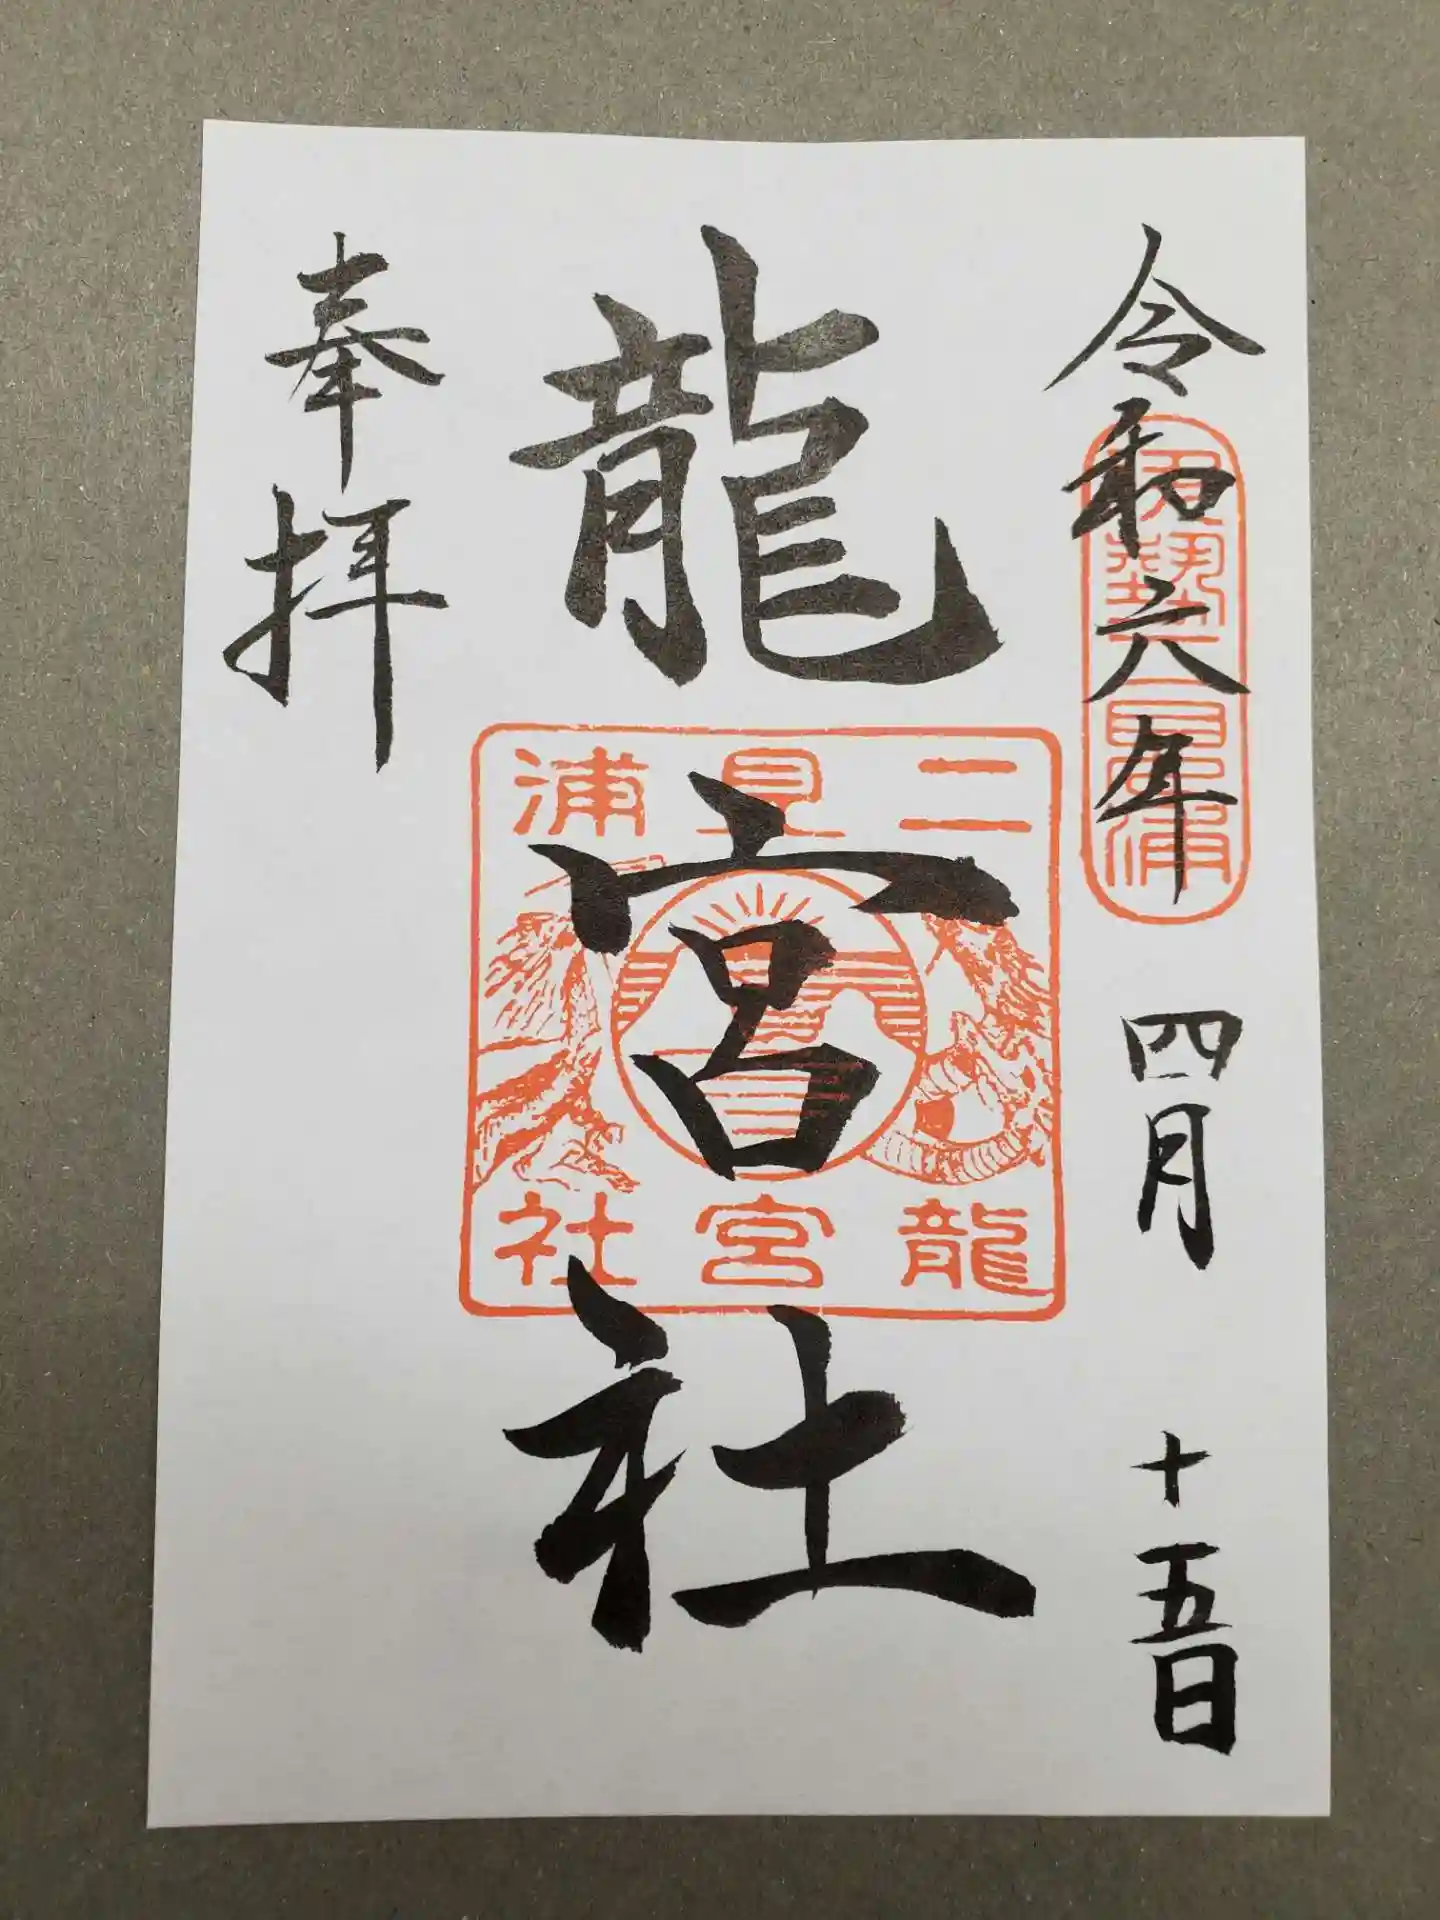 令和六年 四月 十五日
伊勢二見浦
龍宮社
二見浦
龍宮社
奉拝